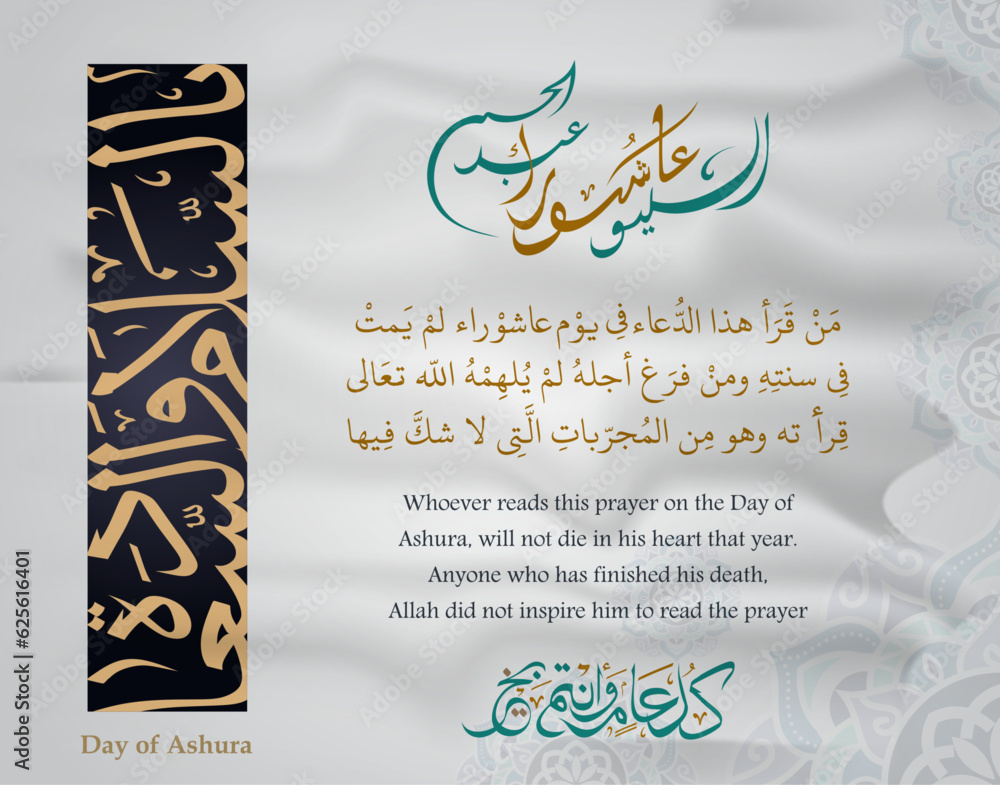 مَنْ قَرَأ هذا الدُّعاء فِي يوْم عاشوْراء لمْ يَمتْ
فِي سنتهِ ومنْ فرَغ أجلهُ لمْ يُلهِمْهُ الله تعَالى
قِرأ ته وهو مِن المُجرّباتِ الَّتِي لا شكَّ فِيها
Whoever reads this prayer on the Day of
Ashura, will not die in his heart that year.
Anyone who has finished his death,
Allah did not inspire him to read the prayer
كل عام وأنتم بخير
Day of Ashura
Adobe Stock | #625616401